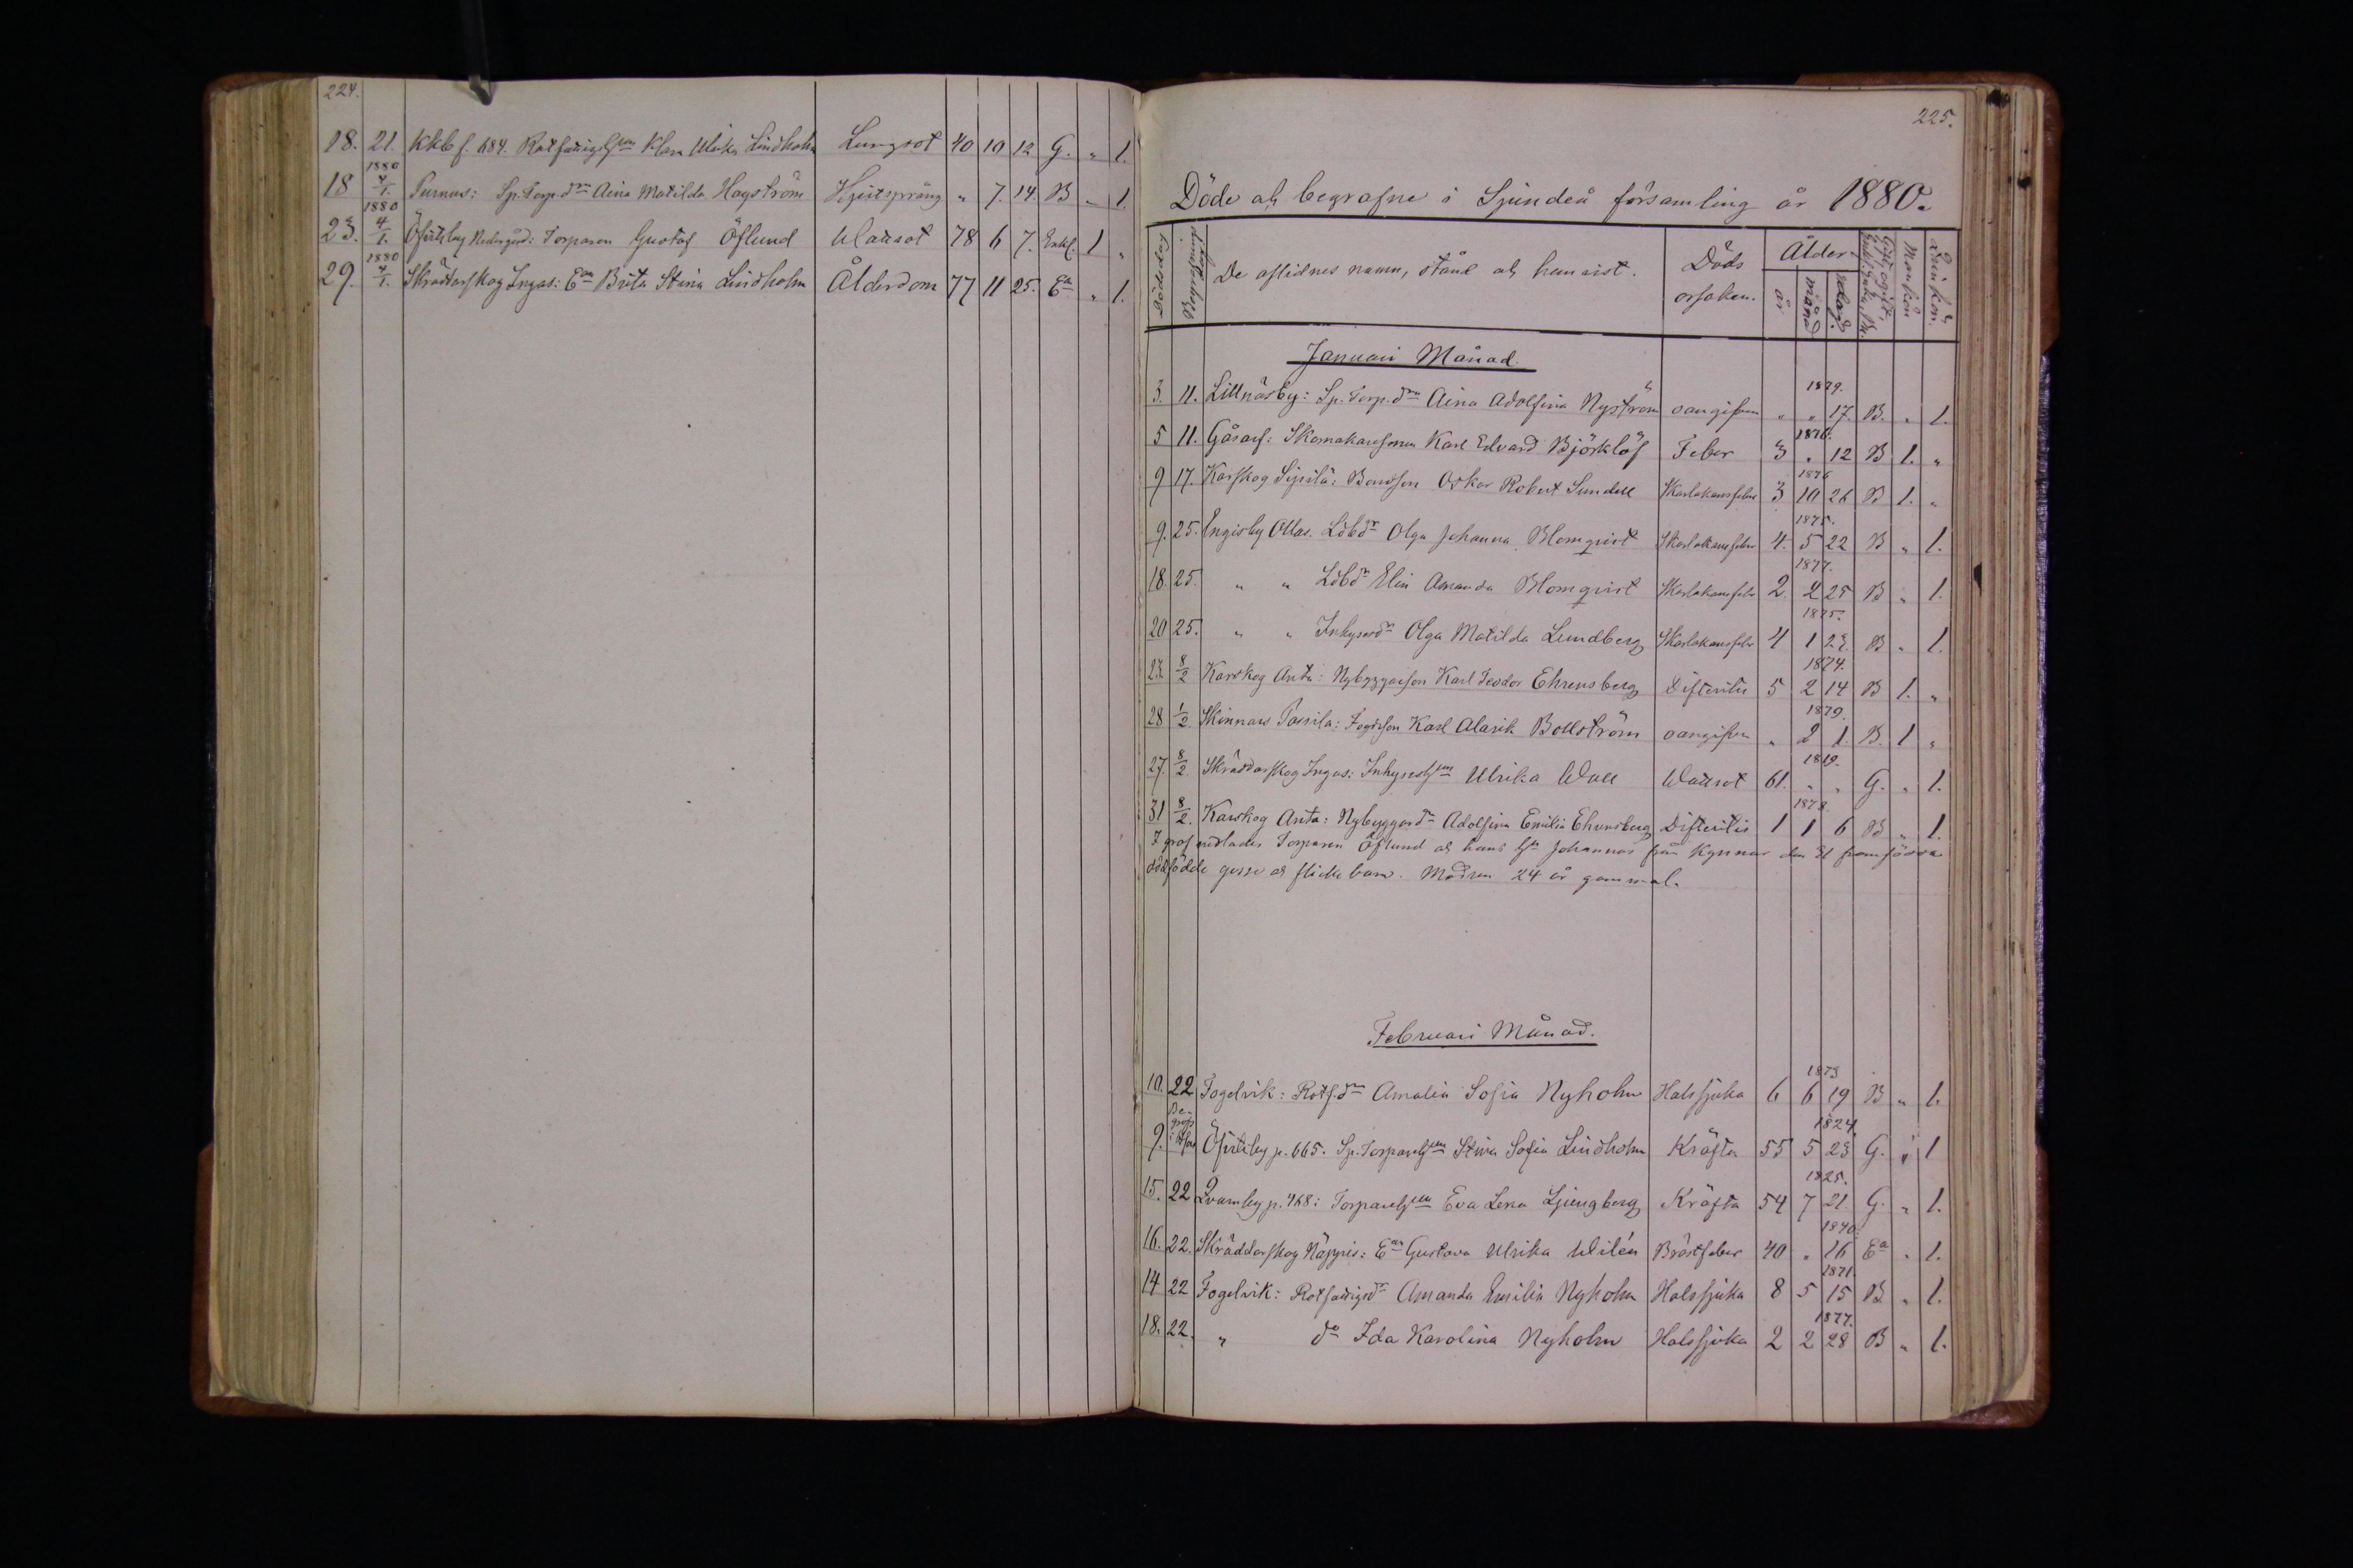 224.
18. 21. Kkb f. 684. Rotfattighjon Klara Ulrika Lindholm Lungsot 40 10 12 G. " 1.
18 1880 4/1. Purnus: Sp. Torp. dr Aina Matilda Hagström Hjertsprång " 7. 14. B " 1.
23. 1880 4/1. Öfvitsby Nedergård: Torparen Gustaf Öflund Wattsot 78 6 7. Enkl. 1 "
29. 1880 4/1. Skräddarskog Ingas: Ean Brita Stina Lindholm Ålderdom 77 11 25. Ea " 1.
225.
Döde och begrafne i Sjundeå församling år 1880.
De aflidnes namn, stånd och hemvist. Döds orsaken. Ålder. år månad dag. Mankön Quinkön.
Januari Månad.
1879.
3. 11. Lillnäsby: Sp. Torp. dr Aina Adolfina Nyström oangifven " " 17. B. " 1.
1876.
5 11. Gåsarf: Skomakaresonen Karl Edvard Björklöf Feber 3 " 12 B 1. "
1876
9 17. Karskog Sipilä: Bondson Oskar Robert Sundell Skarlakansfeber 3 10 26 B 1. "
1875.
9. 25. Engisby Ollas. Ldbdr Olga Johanna Blomqvist Skarlakansfeber 4. 5 22 B " 1.
1877.
18. 25. " " Ldbdr Elin Amanda Blomqvist Skarlakansfeber 2. 2 25 B " 1.
1875.
20 25. " " Inhysesdr Olga Matilda Lundberg Skarlakansfeber 4 1 23. B " 1.
1874.
23 8/2 Karskog Anta: Nybyggareson Karl Teodor Ehrensberg Difteritis 5 2 14 B 1. "
1879.
28 1/2. Skinnars Passila: Fogdeson Karl Alarik Bollström oangifven " 2 1. B. 1 "
1819.
27. 8/2 Skräddarskog Ingas: Inhyseshjon Ulrika Wall Wattsot 61. " " G. " 1.
1878.
31 8/2. Karskog Anta: Nybyggaredr Adolfina Emilia Ehrensberg Difteritis 1 1 6 B " 1.
I graf nedlades Torparen Öflund och hans h:u Johannas från Kynnar den 31 framfödda
dödfödde gosse och flicke barn. Modren 24 år gammal.
Februari Månad.
1873
10. 22 Fogelvik: Rotf. dr Amalia Sofia Nyholm Halssjuka 6 6 19 B " 1.
1824.
9. Öfvitsby p. 665. Sp. Torparehjon Stina Sofia Lindholm Kräfta 55 5 23 G. " 1
1825.
15. 22 Qvarnby p. 468: Torparehjon Eva Lena Ljungberg Kräfta 54 7 21. G. " 1.
1840.
16. 22. Skräddarskog Näppis: Ean Gustava Ulrika Wilén Bröstfeber 40 " 16 Ea " 1.
1871.
14 22 Fogelvik: Rotfattigdr Amanda Emilia Nyholm Halssjuka 8 5 15 B " 1.
1877.
18. 22. " do Ida Karolina Nyholm Halssjuka 2 2 28 B " 1.